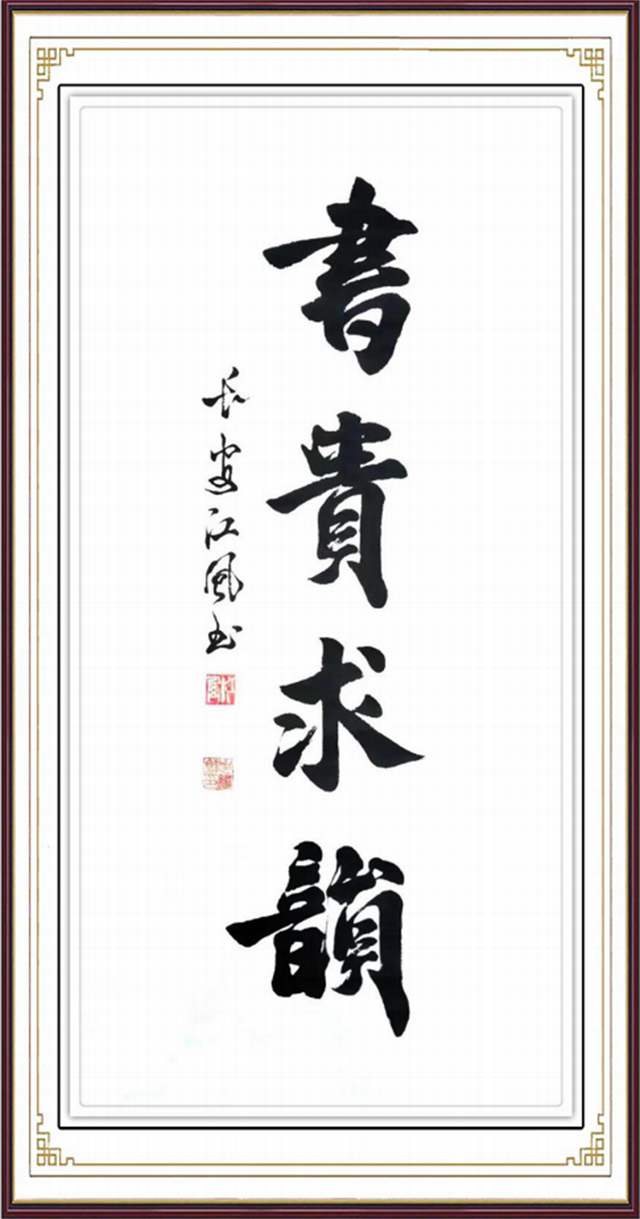 書貴求韻
长安江風书